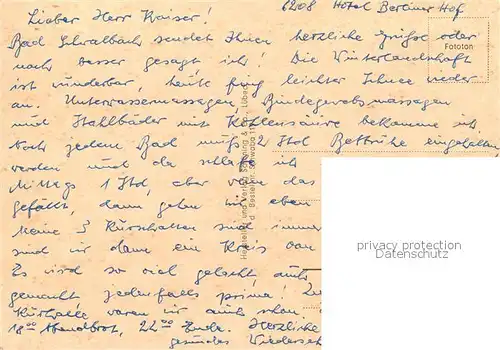 6208 Hotel Berliner Hof
Lieber Herr Kaiser!
Bad Schwalbach sendet Ihnen herzliche Grüße oder
noch besser gesagt ich! Die Winterlandschaft
ist wunderbar, heute fing leichter Schnee wieder
an. Unterwassermassagen, Bindegewebsmassagen
und Stahlbäder mit Kohlensäure bekomme ich
Nach jedem Bad muß 2 Std Bettruhe eingehalten
werden und da schlafe ich
Mittags 1 Std, aber wem das
gefällt, dann geben wir eben
Meine 3 Kurschatten sind immer
sind wir dann ein Kreis von
Es wird so viel gelacht, auch
gemacht jedenfalls prima!
Kurhalle waren wir auch schon.
18°° Abendbrot, 22°° Ende. Herzliche
gesundes Wiederseh
Fototon
Herstellung und Verlag Schöning & Co., Lübeck
Bestellnr. Schwabb
privacy protection
Datenschutz